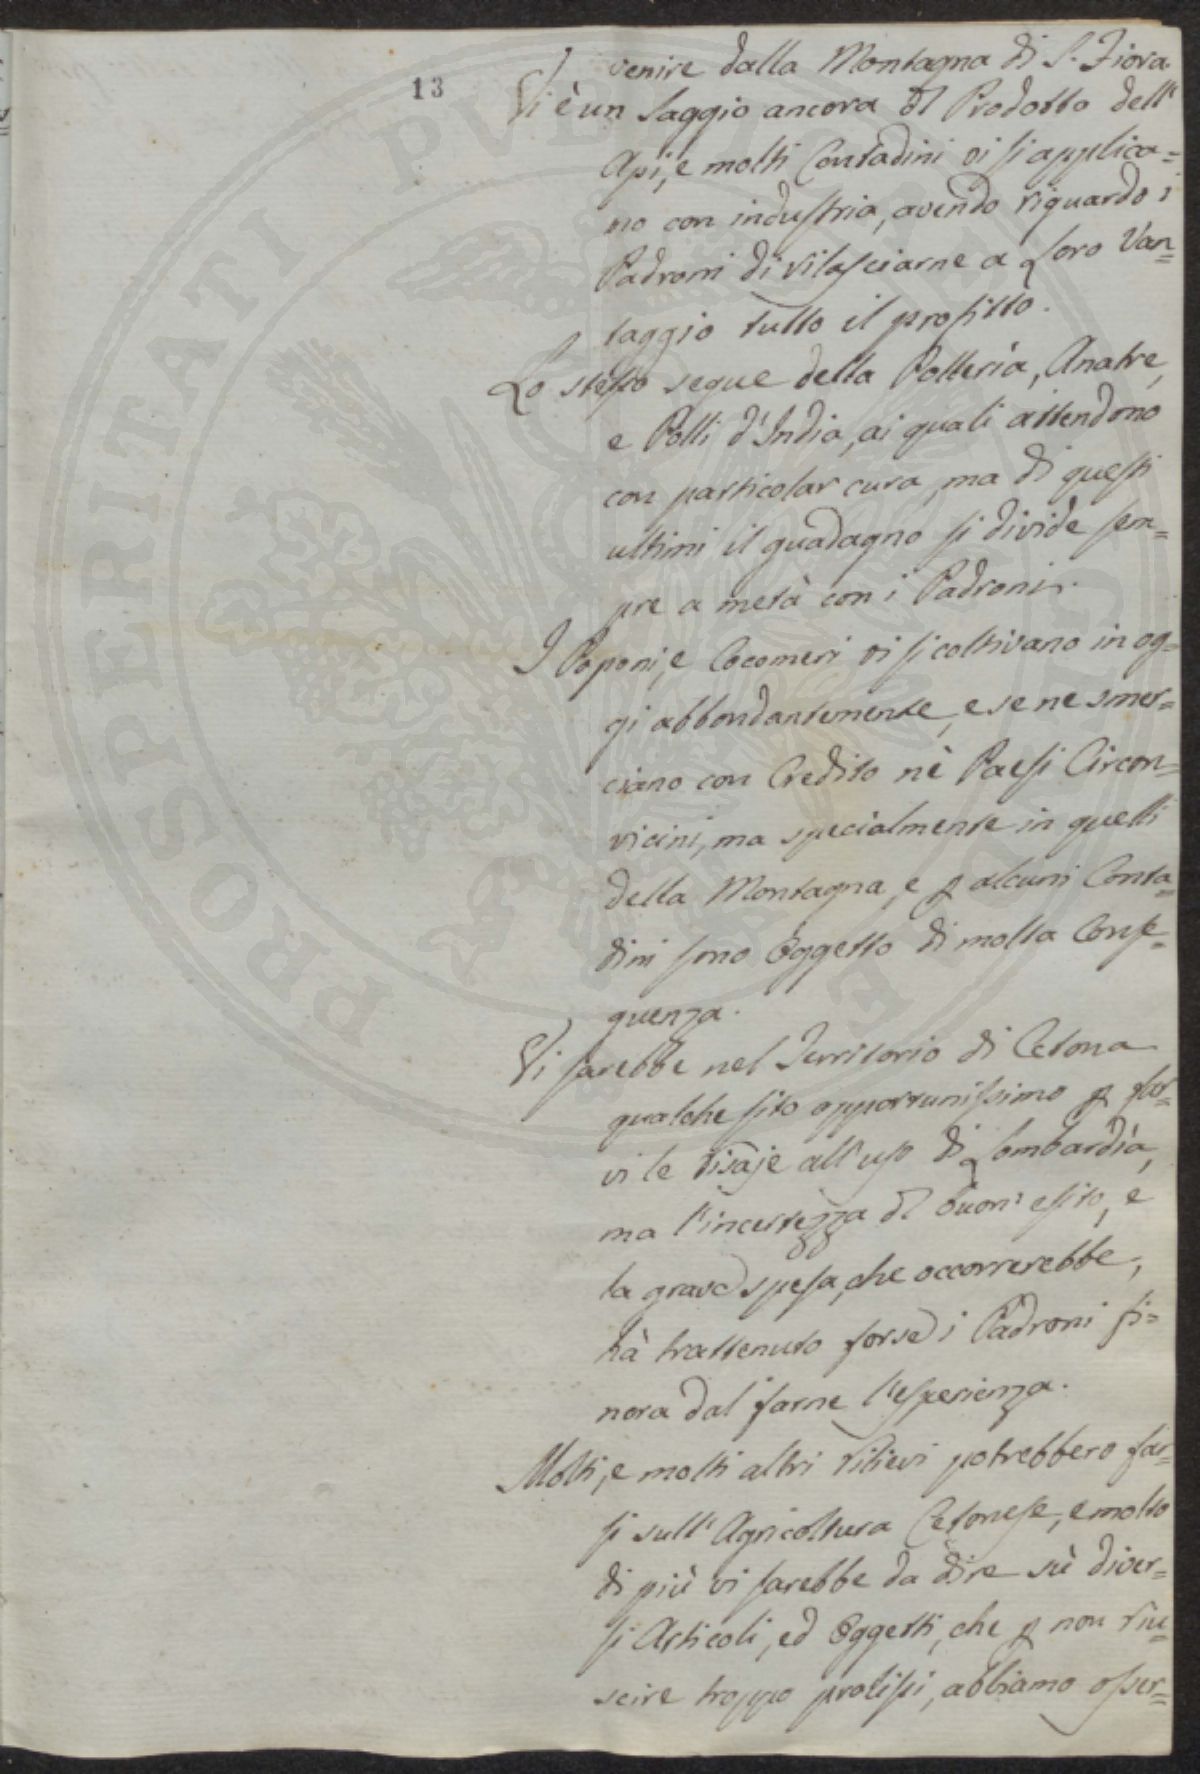 13
venire dalla Montagna di S. Fiora
Vi è un Saggio ancora del Prodotto dell'
Api, e molti Contadini vi si applica=
no con industria, avendo riguardo i
Padroni di rilasciarne a Loro Van=
taggio tutto il profitto.
Lo stesso segue della Polleria, Anatre,
e Polli d'India, ai quali attendono
con particolar cura, ma di questi
ultimi il guadagno si divide sem=
pre a metà con i Padroni.
I Poponi, e Cocomeri vi si coltivano in og=
gi abbondantemente, e se ne smer=
ciano con Credito nè Paesi Circon=
vicini, ma specialmente in quelli
della Montagna, e p alcuni Conta=
dini sono Oggetto di molta Conse=
guenza.
Vi sarebbe nel Territorio di Cetona
qualche sito opportunissimo p far=
vi le risaje all'uso di Lombardia,
ma l'incertezza del buon' esito, e
la grave spesa, che occorrerebbe,
hà trattenuto forse i Padroni fi=
nora dal farne l'esperienza.
Molti, e molti altri rilievi potrebbero far=
si sull' Agricoltura Cetonese, e molto
di più vi sarebbe da dire sù diver=
si Articoli, ed Oggetti, che p non riu=
scire troppo prolissi, abbiamo osser=
PROSPERITATI PVBLICAE